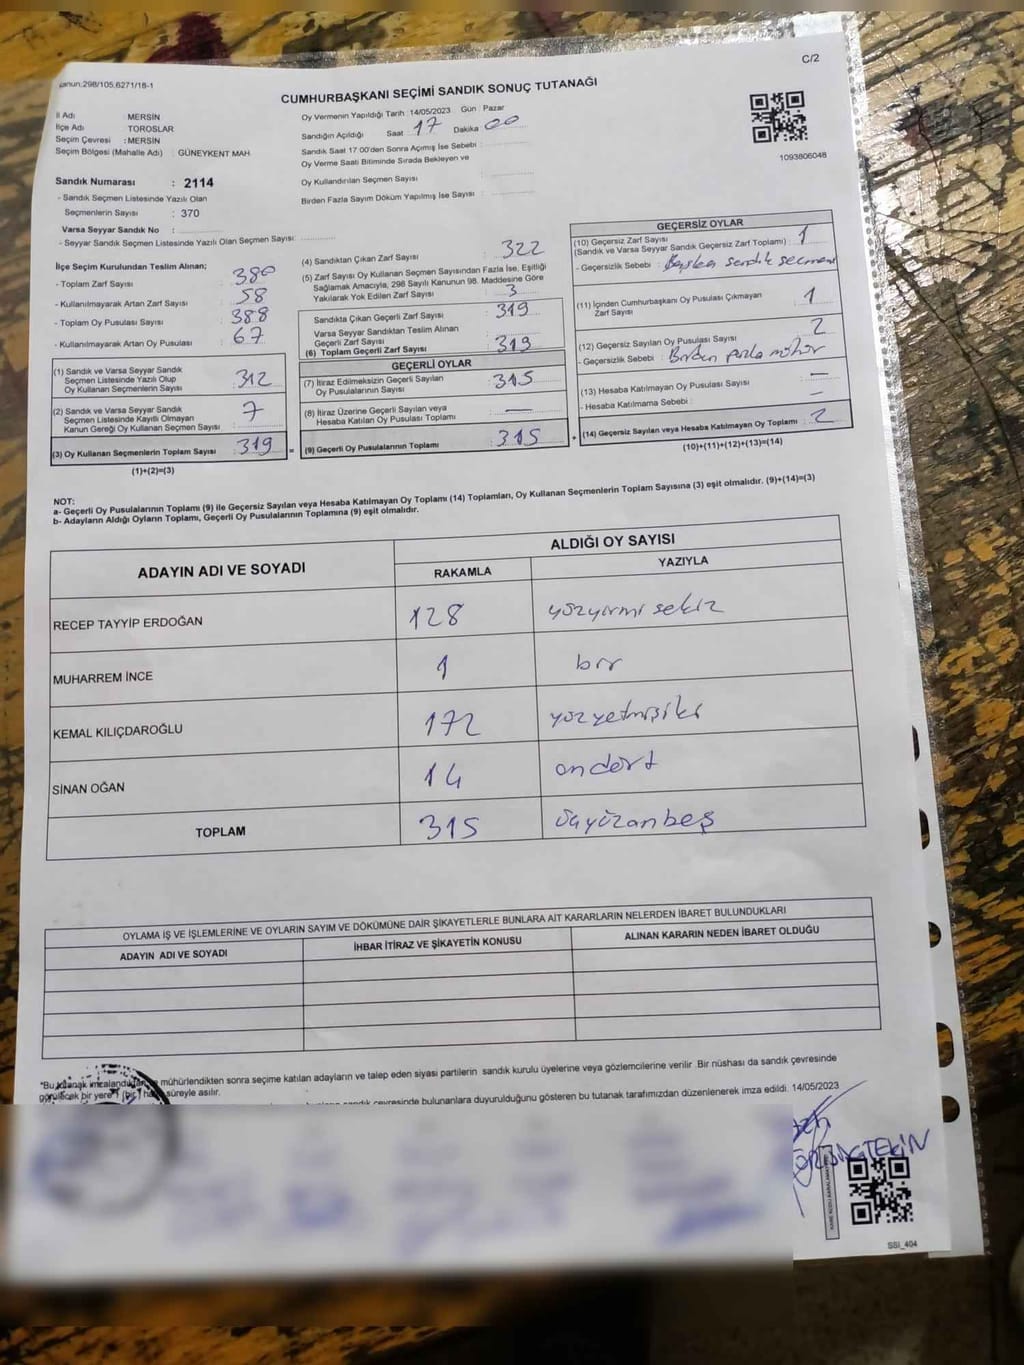 C/2
anun:298/105,6271/18-1
CUMHURBAŞKANI SEÇİMİ SANDIK SONUÇ TUTANAĞI
İl Adı : MERSİN
İlçe Adı : TOROSLAR
Seçim Çevresi : MERSİN
Seçim Bölgesi (Mahalle Adı) : GÜNEYKENT MAH.
Sandık Numarası : 2114
- Sandık Seçmen Listesinde Yazılı Olan
Seçmenlerin Sayısı : 370
Varsa Seyyar Sandık No :
- Seyyar Sandık Seçmen Listesinde Yazılı Olan Seçmen Sayısı:
Oy Vermenin Yapıldığı Tarih :14/05/2023 Gün : Pazar
Sandığın Açıldığı Saat : 17 Dakika 00
Sandık Saat 17:00'den Sonra Açılmış İse Sebebi :
Oy Verme Saati Bitiminde Sırada Bekleyen ve
Oy Kullandırılan Seçmen Sayısı :
Birden Fazla Sayım Döküm Yapılmış İse Sayısı :
1093806048
İlçe Seçim Kurulundan Teslim Alınan;
- Toplam Zarf Sayısı : 380
- Kullanılmayarak Artan Zarf Sayısı : 58
- Toplam Oy Pusulası Sayısı : 388
- Kullanılmayarak Artan Oy Pusulası : 67
(1) Sandık ve Varsa Seyyar Sandık
Seçmen Listesinde Yazılı Olup
Oy Kullanan Seçmenlerin Sayısı : 312
(2) Sandık ve Varsa Seyyar Sandık
Seçmen Listesinde Kayıtlı Olmayan
Kanun Gereği Oy Kullanan Seçmen Sayısı : 7
(3) Oy Kullanan Seçmenlerin Toplam Sayısı : 319
(1)+(2)=(3)
(4) Sandıktan Çıkan Zarf Sayısı : 322
(5) Zarf Sayısı Oy Kullanan Seçmen Sayısından Fazla İse, Eşitliği
Sağlamak Amacıyla, 298 Sayılı Kanunun 98. Maddesine Göre
Yakılarak Yok Edilen Zarf Sayısı : 3
Sandıkta Çıkan Geçerli Zarf Sayısı : 319
Varsa Seyyar Sandıktan Teslim Alınan
Geçerli Zarf Sayısı :
(6) Toplam Geçerli Zarf Sayısı : 319
GEÇERLİ OYLAR
(7) İtiraz Edilmeksizin Geçerli Sayılan
Oy Pusulalarının Sayısı : 315
(8) İtiraz Üzerine Geçerli Sayılan veya
Hesaba Katılan Oy Pusulası Toplamı : —
(9) Geçerli Oy Pusulalarının Toplamı : 315
GEÇERSİZ OYLAR
(10) Geçersiz Zarf Sayısı : 1
(Sandık ve Varsa Seyyar Sandık Geçersiz Zarf Toplamı)
- Geçersizlik Sebebi : Başka sandık seçmeni
(11) İçinden Cumhurbaşkanı Oy Pusulası Çıkmayan
Zarf Sayısı : 1
(12) Geçersiz Sayılan Oy Pusulası Sayısı : 2
- Geçersizlik Sebebi : Birden fazla mühür
(13) Hesaba Katılmayan Oy Pusulası Sayısı : —
- Hesaba Katılmama Sebebi : –
(14) Geçersiz Sayılan veya Hesaba Katılmayan Oy Toplamı : 2
(10)+(11)+(12)+(13)=(14)
NOT:
a- Geçerli Oy Pusulalarının Toplamı (9) ile Geçersiz Sayılan veya Hesaba Katılmayan Oy Toplamı (14) Toplamları, Oy Kullanan Seçmenlerin Toplam Sayısına (3) eşit olmalıdır. (9)+(14)=(3)
b- Adayların Aldığı Oyların Toplamı, Geçerli Oy Pusulalarının Toplamına (9) eşit olmalıdır.
ADAYIN ADI VE SOYADI
ALDIĞI OY SAYISI
RAKAMLA YAZIYLA
RECEP TAYYİP ERDOĞAN 128 yüzyirmi sekiz
MUHARREM İNCE 1 bir
KEMAL KILIÇDAROĞLU 172 yüzyetmişiki
SİNAN OĞAN 14 ondört
TOPLAM 315 üçyüzonbeş
OYLAMA İŞ VE İŞLEMLERİNE VE OYLARIN SAYIM VE DÖKÜMÜNE DAİR ŞİKAYETLERLE BUNLARA AİT KARARLARIN NELERDEN İBARET BULUNDUKLARI
ADAYIN ADI VE SOYADI İHBAR İTİRAZ VE ŞİKAYETİN KONUSU ALINAN KARARIN NEDEN İBARET OLDUĞU
*Bu tutanak imzalandıktan ve mühürlendikten sonra seçime katılan adayların ve talep eden siyasi partilerin sandık kurulu üyelerine veya gözlemcilerine verilir .Bir nüshası da sandık çevresinde
görülecek bir yere 1 (bir) hafta süreyle asılır.
sandık çevresinde bulunanlara duyurulduğunu gösteren bu tutanak tarafımızdan düzenlenerek imza edildi. 14/05/2023
SSI_404